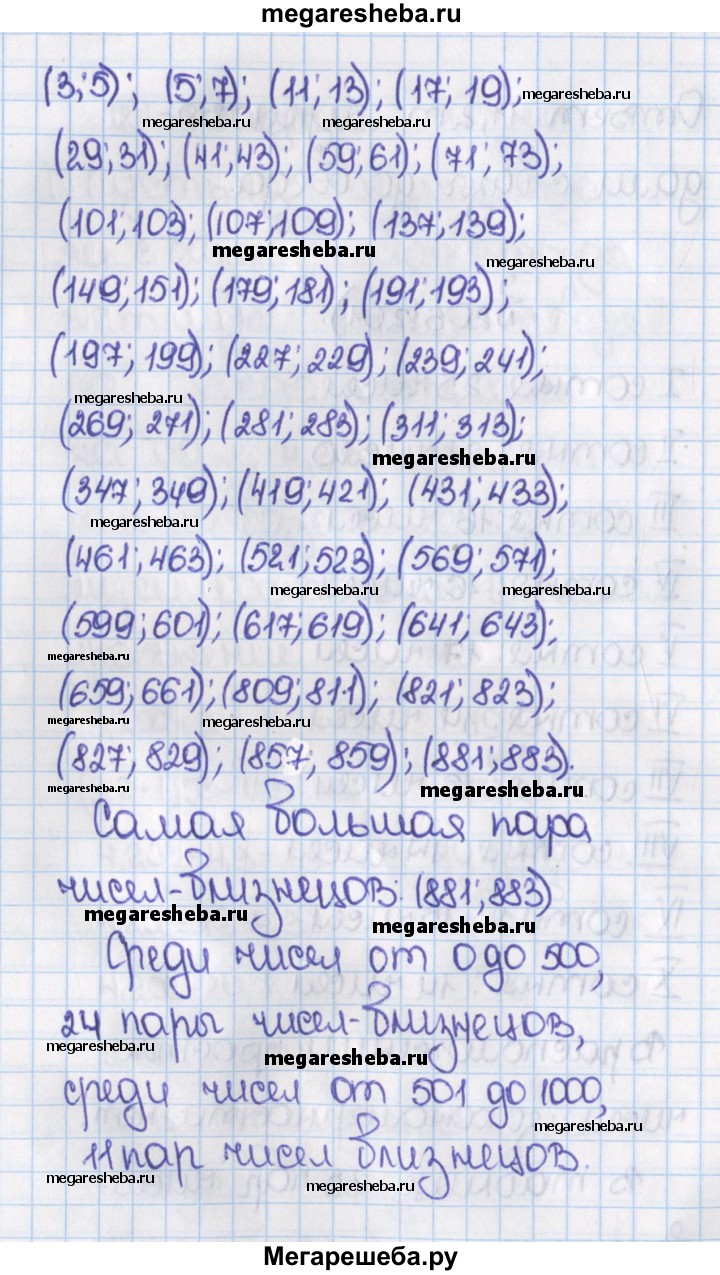 megaresheba.ru
(3; 5); (5; 7); (11; 13); (17; 19);
megaresheba.ru
megaresheba.ru megaresheba.ru
(29; 31); (41; 43); (59; 61); (71; 73);
(101; 103); (107; 109); (137; 139);
megaresheba.ru
megaresheba.ru
(149; 151); (179; 181); (191; 193);
(197; 199); (227; 229); (239; 241);
megaresheba.ru
(269; 271); (281; 283); (311; 313);
megaresheba.ru
(347; 349); (419; 421); (431; 433);
megaresheba.ru
(461; 463); (521; 523); (569; 571);
megaresheba.ru megaresheba.ru
(599; 601); (617; 619); (641; 643);
megaresheba.ru
(659; 661); (809; 811); (821; 823);
megaresheba.ru megaresheba.ru
(827; 829); (857; 859); (881; 883).
megaresheba.ru megaresheba.ru
Самая большая пара
чисел-близнецов: (881; 883)
megaresheba.ru megaresheba.ru
Среди чисел от 0 до 500,
24 пары чисел-близнецов,
megaresheba.ru megaresheba.ru
среди чисел от 501 до 1000,
megaresheba.ru
11 пар чисел близнецов.
megaresheba.ru megaresheba.ru
Мегарешеба.ру